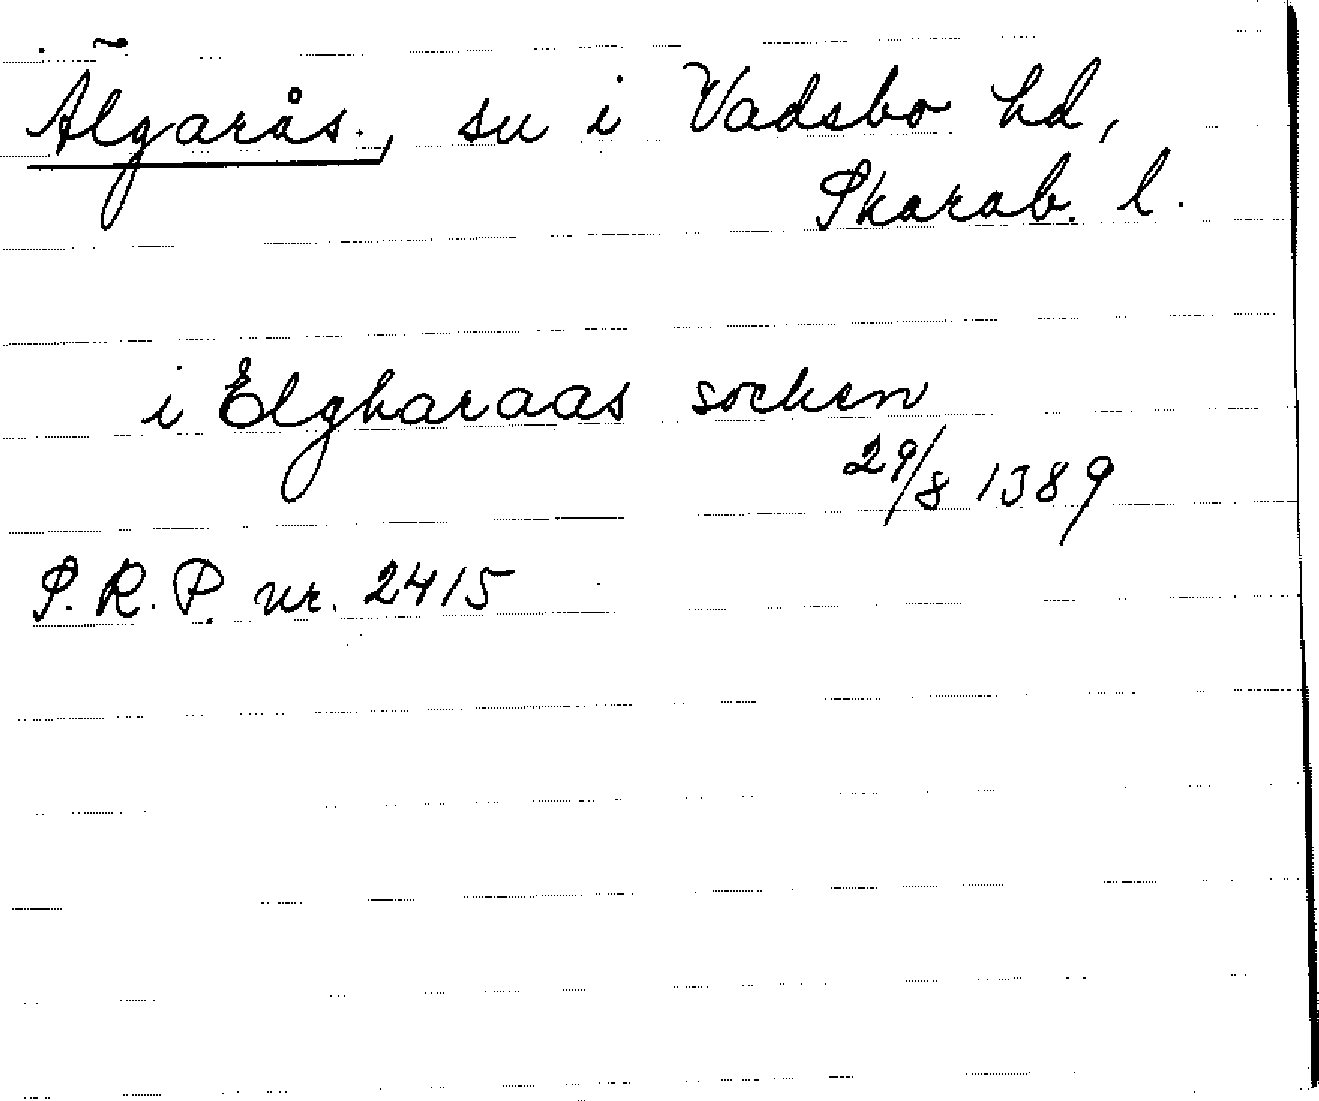 Älgarås, sn i Vadsbo hd,
Skarab. l.
i Elgharaas socken
29/8 1389
S.R.P. nr. 2415